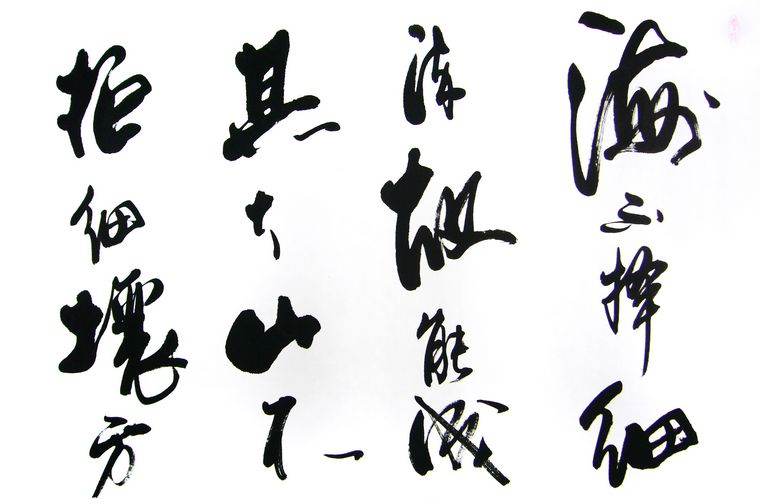 海不择细
流故能成
其大山不
拒细壤方